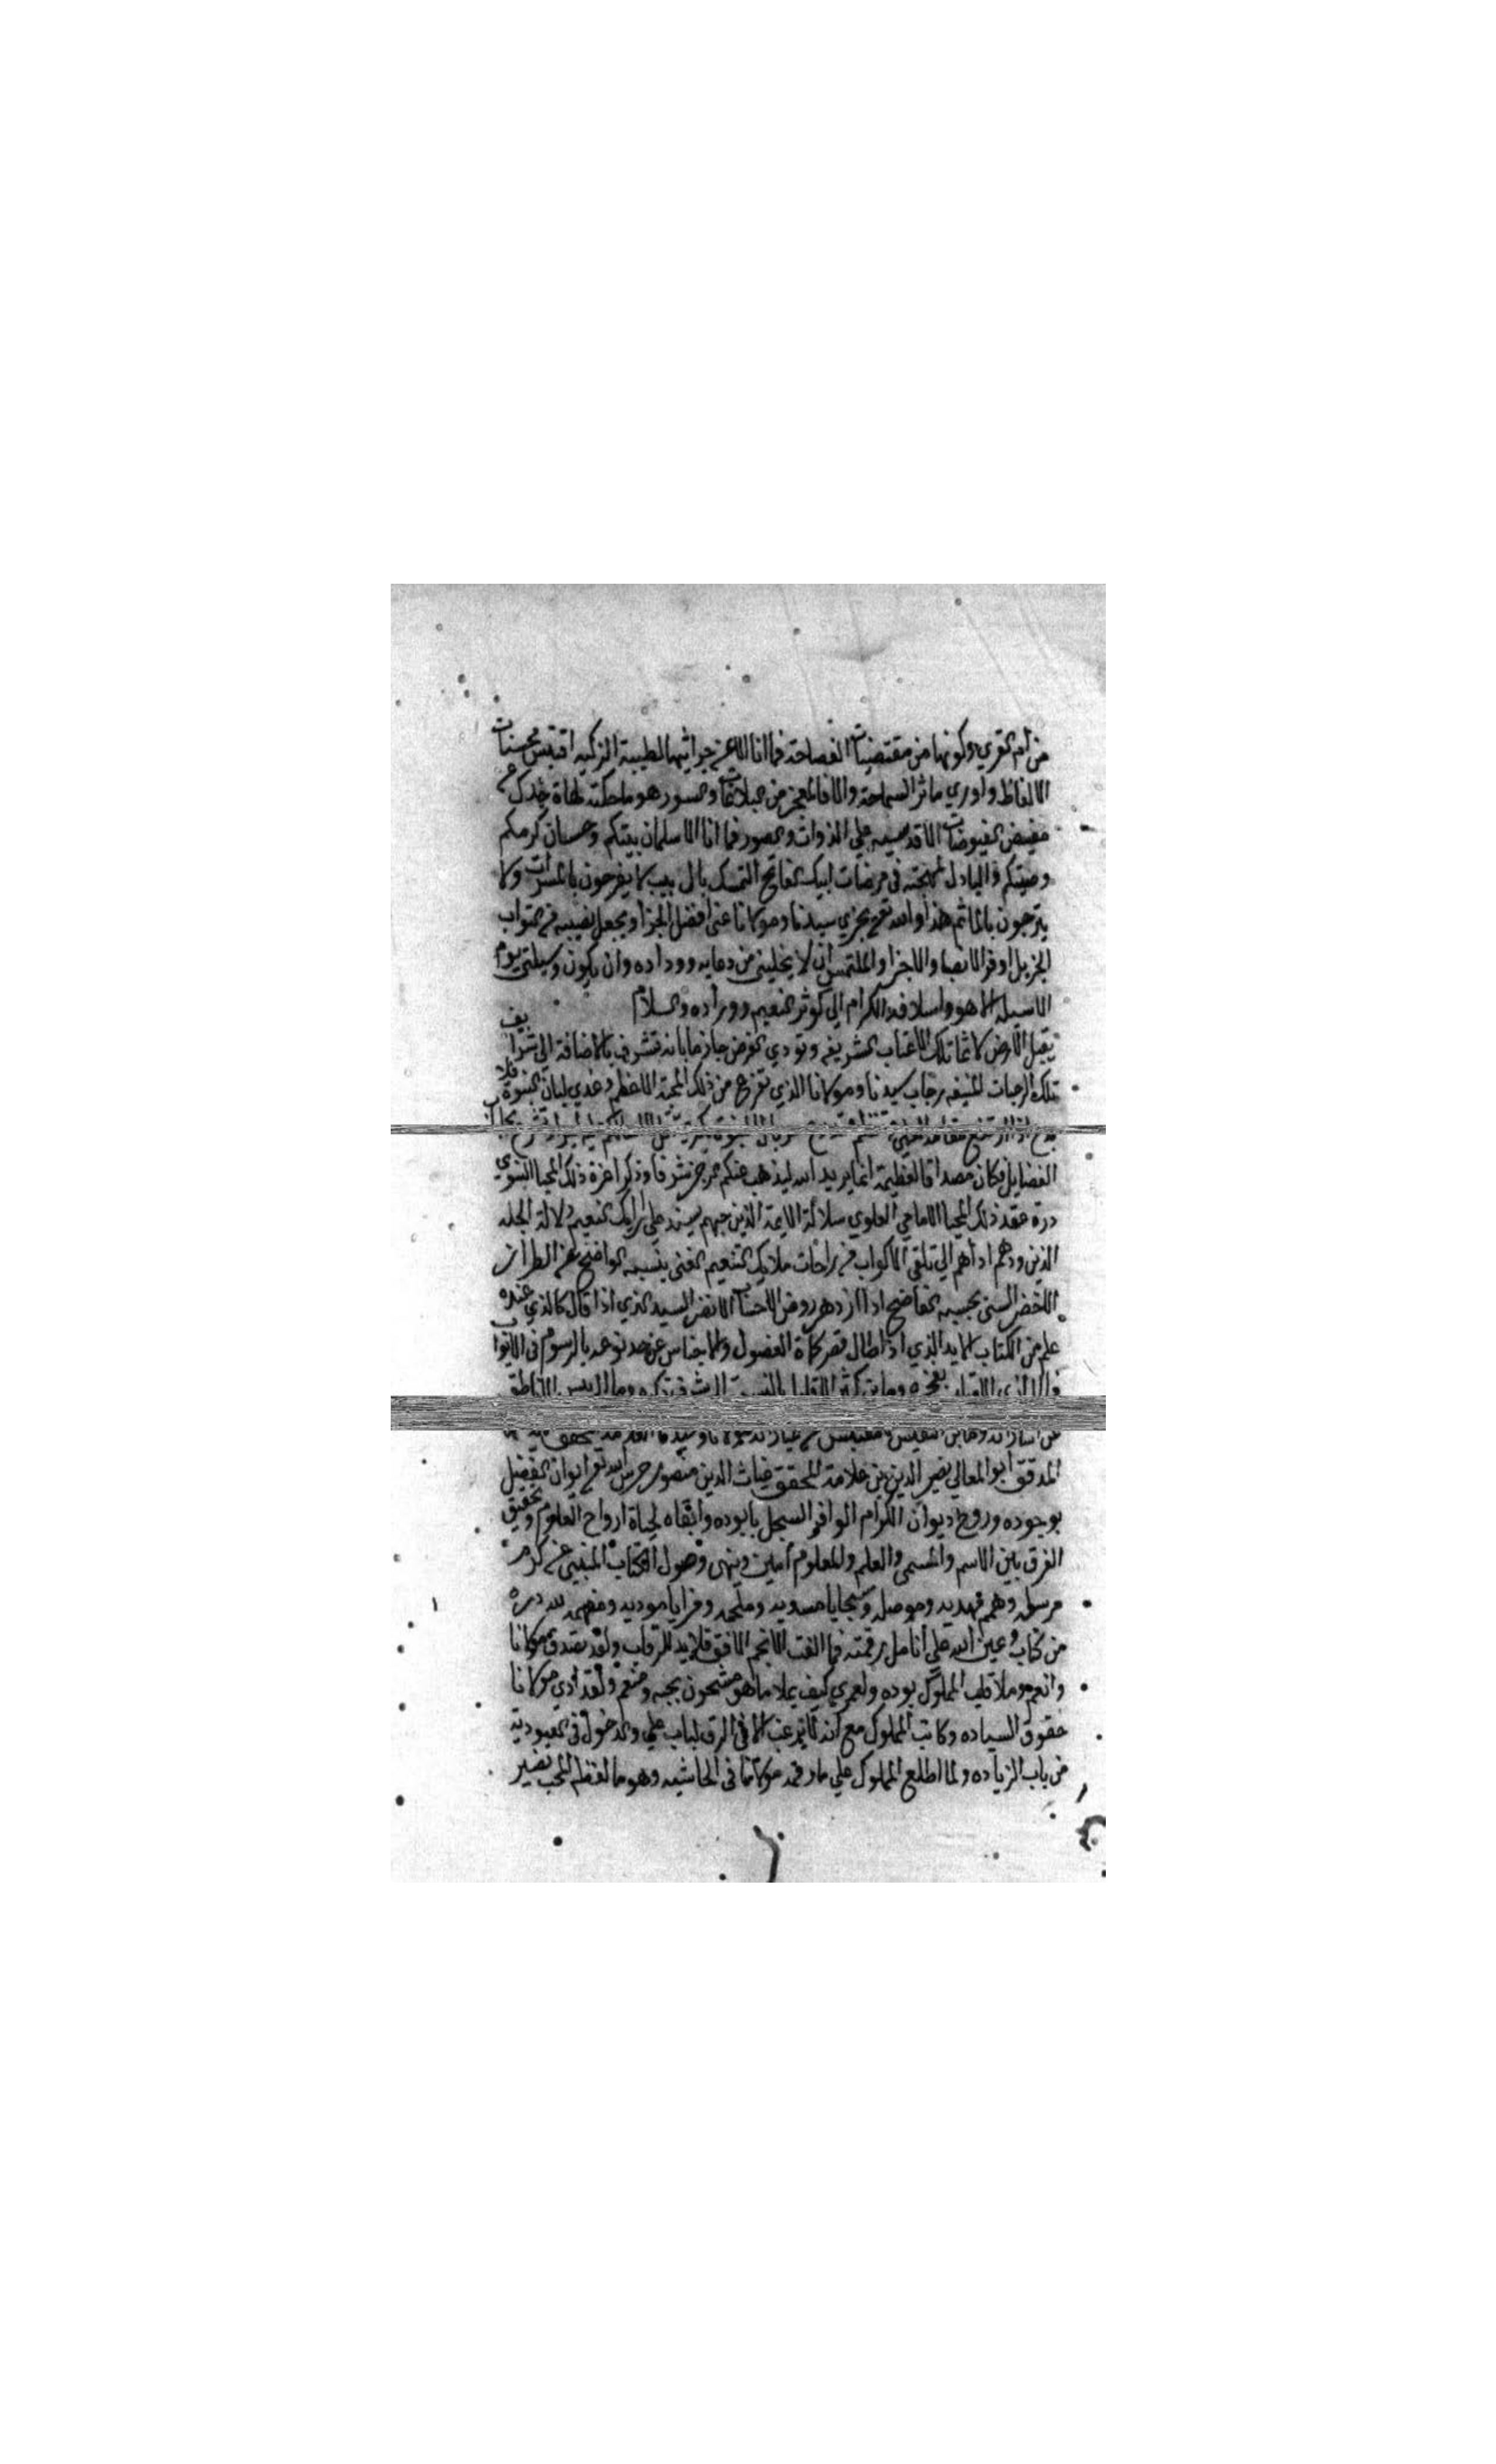 من ام القرى وكونها من مقتضيات الفصاحة فما انا الا عن جراثيمها الطيبة الزكيه اقتبس محسنات
الالفاظ واوري ماثر السماحة والا فالمعجز من البلاغات والسور هو ما حكته لهاة جدك
مفيض الفيوضات الاقدسيه على الذوات والصور فما انا الا سلمان بيتكم وحسان كرمكم
وصيتكم والباذل لمهجته في مرضات ابيك الفاتح التمسك بال بيب لا يفرحون بالمسرات ولا
بالماثم هذا والله تعالى يجزي سيدنا ومولانا عنى افضل الجزا ويجعل نصيبه من الثواب
الجزيل اوفر الانصبا والاجزا والملتمس ان لا يخليني من دعايه ووداده وان يكون وسيلتي يوم
لا سيلة الا هو واسلافه الكرام الي كوثر النعيم ووراده والسلام
يقبل الارض لاثما تلك الاعتاب الشريفه ويودي الفرض جازما بانه تشرف بالاضافة الي شرايف
تلك الرحبات المنيفه رحاب سيدنا ومولانا الذي تفرع من ذلك المحتد الاعظم وغذي لبان النبوة فلا
الفضايل فكان مصداقا لعظيمة انما يريد الله ليذهب عنكم الرجس شرفا وذكرا غرة ذلك المحيا النبوي
درة عقد ذلك المحيا الامامي العلوي سلالة الايمة الذين حبهم يسند على ارايك النعيم دلالة الجله
الذين ودهم اداهم الي تلقي الاكواب من راحات ملايك التنعيم الغنى بنسبه الواضح عن الطراز
الاخضر السنى بحسبه الفاضح اذا ازدهر روض الاحساب الانضر السيد الذي اذا قال كالذي عنده
علم من الكتاب الايد الذي اذا طال قصر كماة الفصول والاجناس عن حد نوعه بالرسوم في الابواب
المدقق ابو المعالي نصير الدين بن علامة المحقق غياث الدين منصور حرس الله تعالى ايوان الفضل
بوجوده وروح ديوان الكرام الوافر السجل بابوده وابقاه لحياة ارواح العلوم وتحقيق
الفرق بين الاسم والمسمى والعلم والمعلوم امين وينهى وصول الكتاب المنبي عن كرم
مرسله وهمم مهديه وموصله وسجايا مسديه وملحمه ومزايا موديه ومفهمه لله دره
من كتاب وعين الله على انامل رقمته فما الفت الانجم الافق قلايد للرقاب ولقد تصدق مولانا
وانعم وملا قلب المملوك بوده ولعمري كيف يملا ما هو مشحون بحبه ومفعم ولقد ادي مولانا
حقوق السياده وكاتب المملوك مع انه لا يرغب الا في الرق لباب علي والدخول في العبودية
من باب الزياده ولما اطلع المملوك على ما رقمه مولانا في الحاشيه وهو ما لفظه المحب نصير